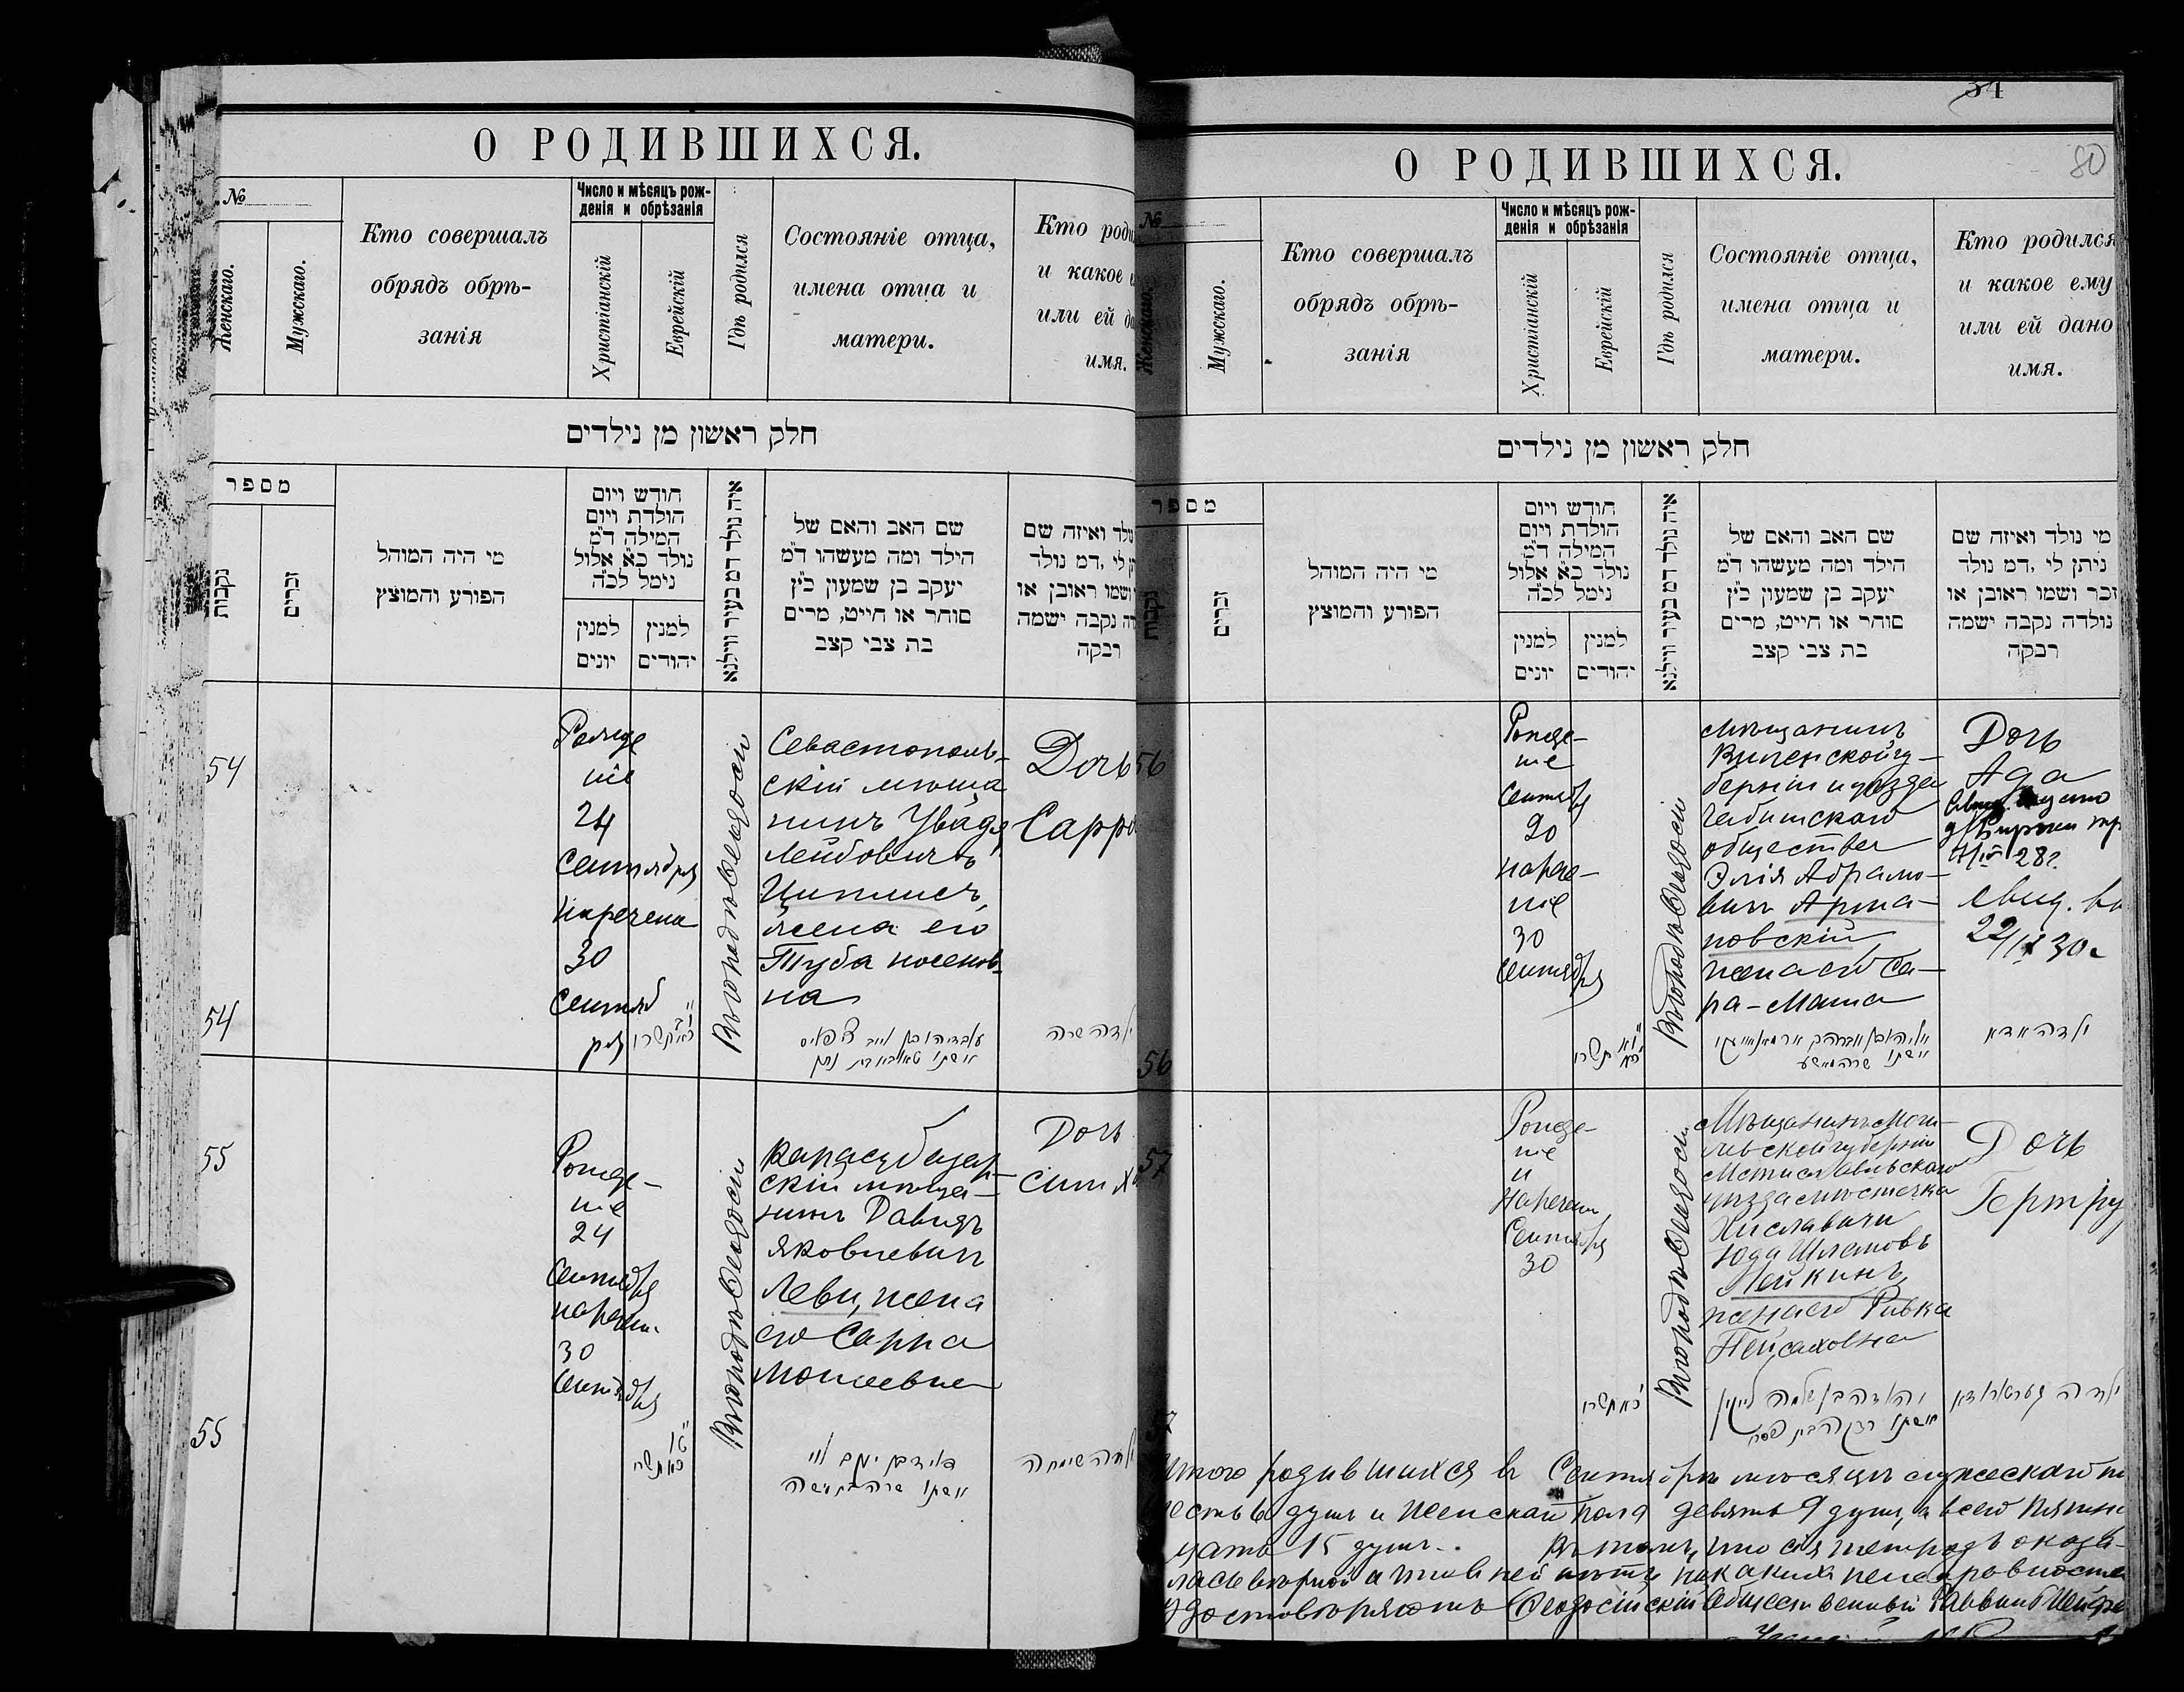 О РОДИВШИХСЯ.
№
Женскаго.
Мужскаго.
Кто совершалъ
обрядъ обрѣ-
занія
Число и мѣсяцъ рож-
денія и обрѣзанія
Христіанскій
Еврейскій
Гдѣ родился
Состояніе отца,
имена отца и
матери.
Кто роди
и какое
или ей
имя.
חלק ראשון מן נילדים
מספר
נקבות
זכרים
מי היה המוהל
הפורע והמוצץ
חודש ויום
הולדת ויום
המילה ד״מ
נולד כ״א אלול
נימל לכ״ה
למנין יונים
למנין יהודים
איה נולד דמ בעיר ווילנא
שם האב והאם של
הילד ומה מעשהו ד״מ
יעקב בן שמעון כ״ץ
סוחר או חייט, מרים
בת צבי קצב
ולד ואיזה שם
לי ,דמ נולד
ושמו ראובן או
נקבה ישמה
רבקה
54
Рожде
ніе
24
Сентября
наречена
30
Сентяб
ря
Въ городѣ Ѳеодосіи
Севастополь-
скій мѣща
нинъ Увадя
Лейбовичъ
Ципинсъ,
жена его
Туба носенов-
на
Дочь
Сарра
54
ילדה שרה
55
Рожде-
ніе
24
Сентября
наречен.
30
Сентября
Въ городѣ Ѳеодосіи
Карасубазар-
скій мѣща-
нинъ Давидъ
Яковлевичъ
Леви, жена
его Сарра
Моисеевна
Дочь
Симх
55
דוד בן יעקב לוי
אשתו שרה בת משה
ילדה שימחה
34
80
О РОДИВШИХСЯ.
№
Женскаго.
Мужскаго.
Кто совершалъ
обрядъ обрѣ-
занія
Число и мѣсяцъ рож-
денія и обрѣзанія
Христіанскій
Еврейскій
Гдѣ родился
Состояніе отца,
имена отца и
матери.
Кто родился
и какое ему
или ей дано
имя.
חלק ראשון מן נילדים
מספר
נקבות
זכרים
מי היה המוהל
הפורע והמוצץ
חודש ויום
הולדת ויום
המילה ד״מ
נולד כ״א אלול
נימל לכ״ה
למנין יונים
למנין יהודים
איה נולד דמ בעיר ווילנא
שם האב והאם של
הילד ומה מעשהו ד״מ
יעקב בן שמעון כ״ץ
סוחר או חייט, מרים
בת צבי קצב
מי נולד ואיזה שם
ניתן לי ,דמ נולד
זכר ושמו ראובן או
נולדה נקבה ישמה
רבקה
56
Рожде-
ніе
Сентября
20
нарече-
ніе
30
Сентября
Въ городѣ Ѳеодосіи
Мѣщанинъ
Виленской гу-
берніи уѣзда
общества
Элія Абрамо-
вичъ Арма-
новскій
жена его Са-
ра-Маша
Дочь
Ада
28г.
22/IX 30г
56
ילדה אדא
57
Рожде-
ніе
и
наречен.
Сентября
30
Въ городѣ Ѳеодосіи
Мѣщанинъ Моги-
левской губерніи
Мстиславльскаго
уѣзда мѣстечка
Хиславичи
Юда Шлемовъ
Лейкинъ,
жена его Ривка
Пейсаховна
Дочь
Гертру
57
יהודה בן שלמה לייקין
אשתו רבקה בת פסח
ילדה גערטרודא
Итого родившихся въ Сентябрѣ мѣсяцѣ мужескаго п
шесть 6 душъ и женскаго пола девять 9 душъ, а всего пятна
дцать 15 душъ. Въ томъ, что сія тетрадь оказа-
лась вѣрной и что въ ней нѣтъ никакихъ неисправностей
удостовѣряетъ Ѳеодосійскій Общественный Раввинъ